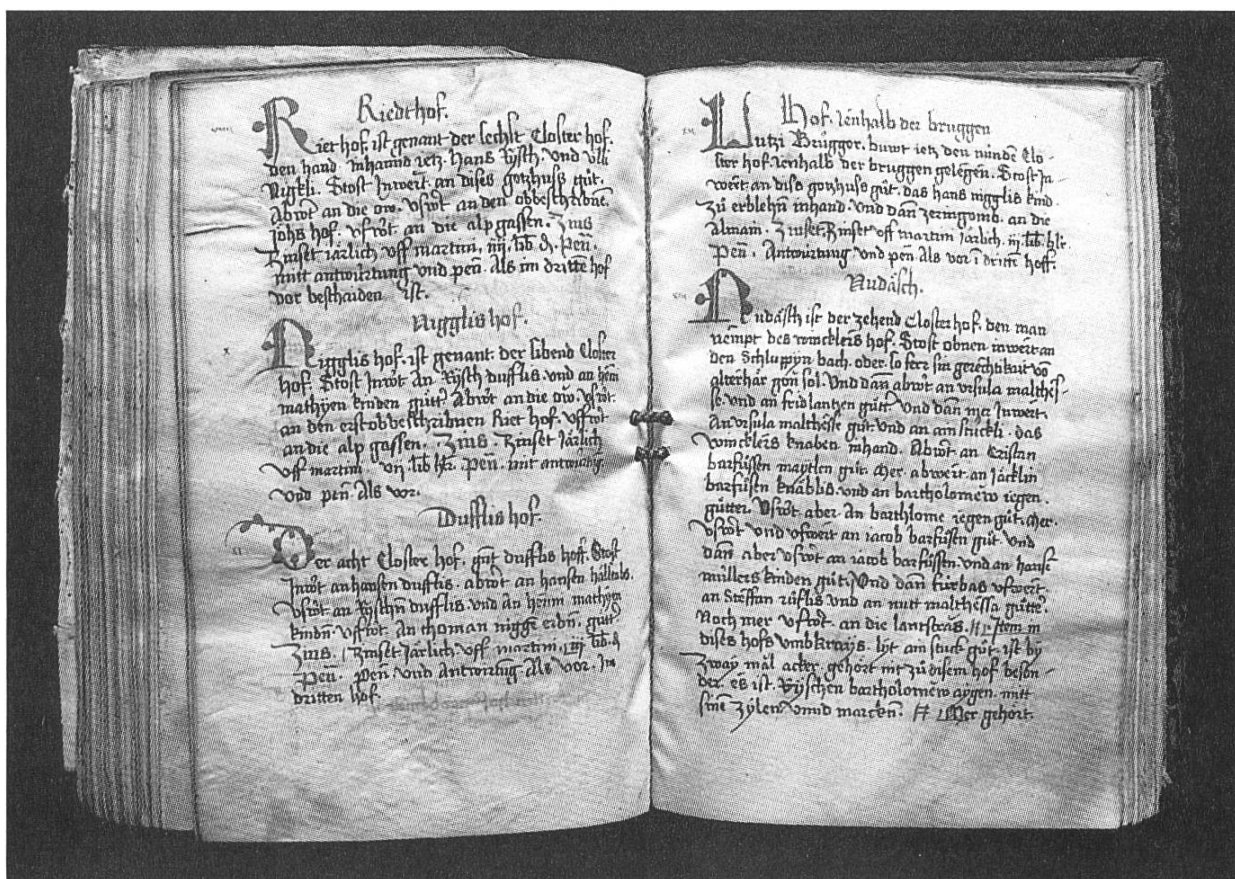 Riedt hof.
Riet hof. ist genant der sechst Closter hof.
den hand Inhannd ietz. Hans Rÿsch. vnd vlli
Niggli. Stost Inwert. an dises gotzhuss gůt.
Abwt an die ow. vswt an den obbeschribnē.
Johs hof. vfwt an die alp gassen. Zins
Zinset iärlich vff martini. iiij. lib. d. Pen̄.
mitt antwurtung vnd pen̄. Als im dritte hof
vor beschaiden ist.
Nigglis hof.
Nigglis hof. ist genant. der sibend Closter
hof. Stost Inwt An Rÿsch dufflis. vnd an heini
mathÿen kinden gůtt Abwt an die ow. vswt.
an den erstobbeschribnen Riet hof. vffwt
an die alp gassen. Zins. Zinset Järlich
vff martini vij lib hlr. pen̄. mit antwurtūg
vnd pen̄. Als vor.
Dufflis hof.
Der acht Closter hof. gn̄t dufflis hoff. Stost
Inwt an hansen dufflis. abwt an hansen
vswt an Rÿschn̄ dufflis. vnd An heini mathÿen
kindn̄. vffwt. An thoman nigg gůtt
Zins. Zinset Järlich vff martini. iiij lib. d
Pen̄. pen̄. vnd Antwurtūg. Als vor. Im
dritten hof.
Hof. Ienhalb der bruggen
Lutzi Brugger. buwt ietz den nunde Clo-
ster hof. Ienhalb der bruggen gelegen. Stost In-
wert. an dis gotzhuss gůt. das hans nigglis kind.
Zů erblehn̄ inhand. vnd dan̄ zeringomb. an die
Almain. Zinset. Zinset vff martini järlich. iij. lib. hlr.
Pen̄. Antwurtung. vnd pen̄ Als vor i dritte hoff.
Nudäsch.
Nudäsch ist der zehend Closter hof. den man
nempt des wincklers hof. Stost obnen inwert an
den Schluppÿn bach. oder. so ferr sin gerechtikait vō
alterhär gon sol. Vnd dan̄ abwt an vrsula malthes-
se. vnd an frid lantzen gůtt Vnd dan̄ me Inwert.
An vrsula malthesse gůt. vnd an ain stuckli. das
wincklers knaben inhand. Abwt an Cristan
barfůssen maÿtlen gůt. Mer. abwert. an Jäcklin
barfůsen knäblis. vnd an bartholomew iegen.
gůtter. Vswt aber. An bartholome iegen gůt. Mer.
vswt vnd vfwert an iacob barfůsen gůt. Vnd
dan̄ aber vswt an iacob barfůssen. vnd an hanse
mullers kinden gůt. Vnd dan̄ furbas vfwert.
an Steffan ruflis vnd an nutt malthessa gůtte.
Noch mer vswt. an die lantstras. Item in
dises hofs vmbkraÿs. lÿt ain stuck gůt. ist bÿ
Zwaÿ mal acker. gehört nit zů disem hof beson-
der. es ist. Rÿschen bartholomew aÿgen. mitt
sine zÿlen vnnd marckn̄. Mer gehört.